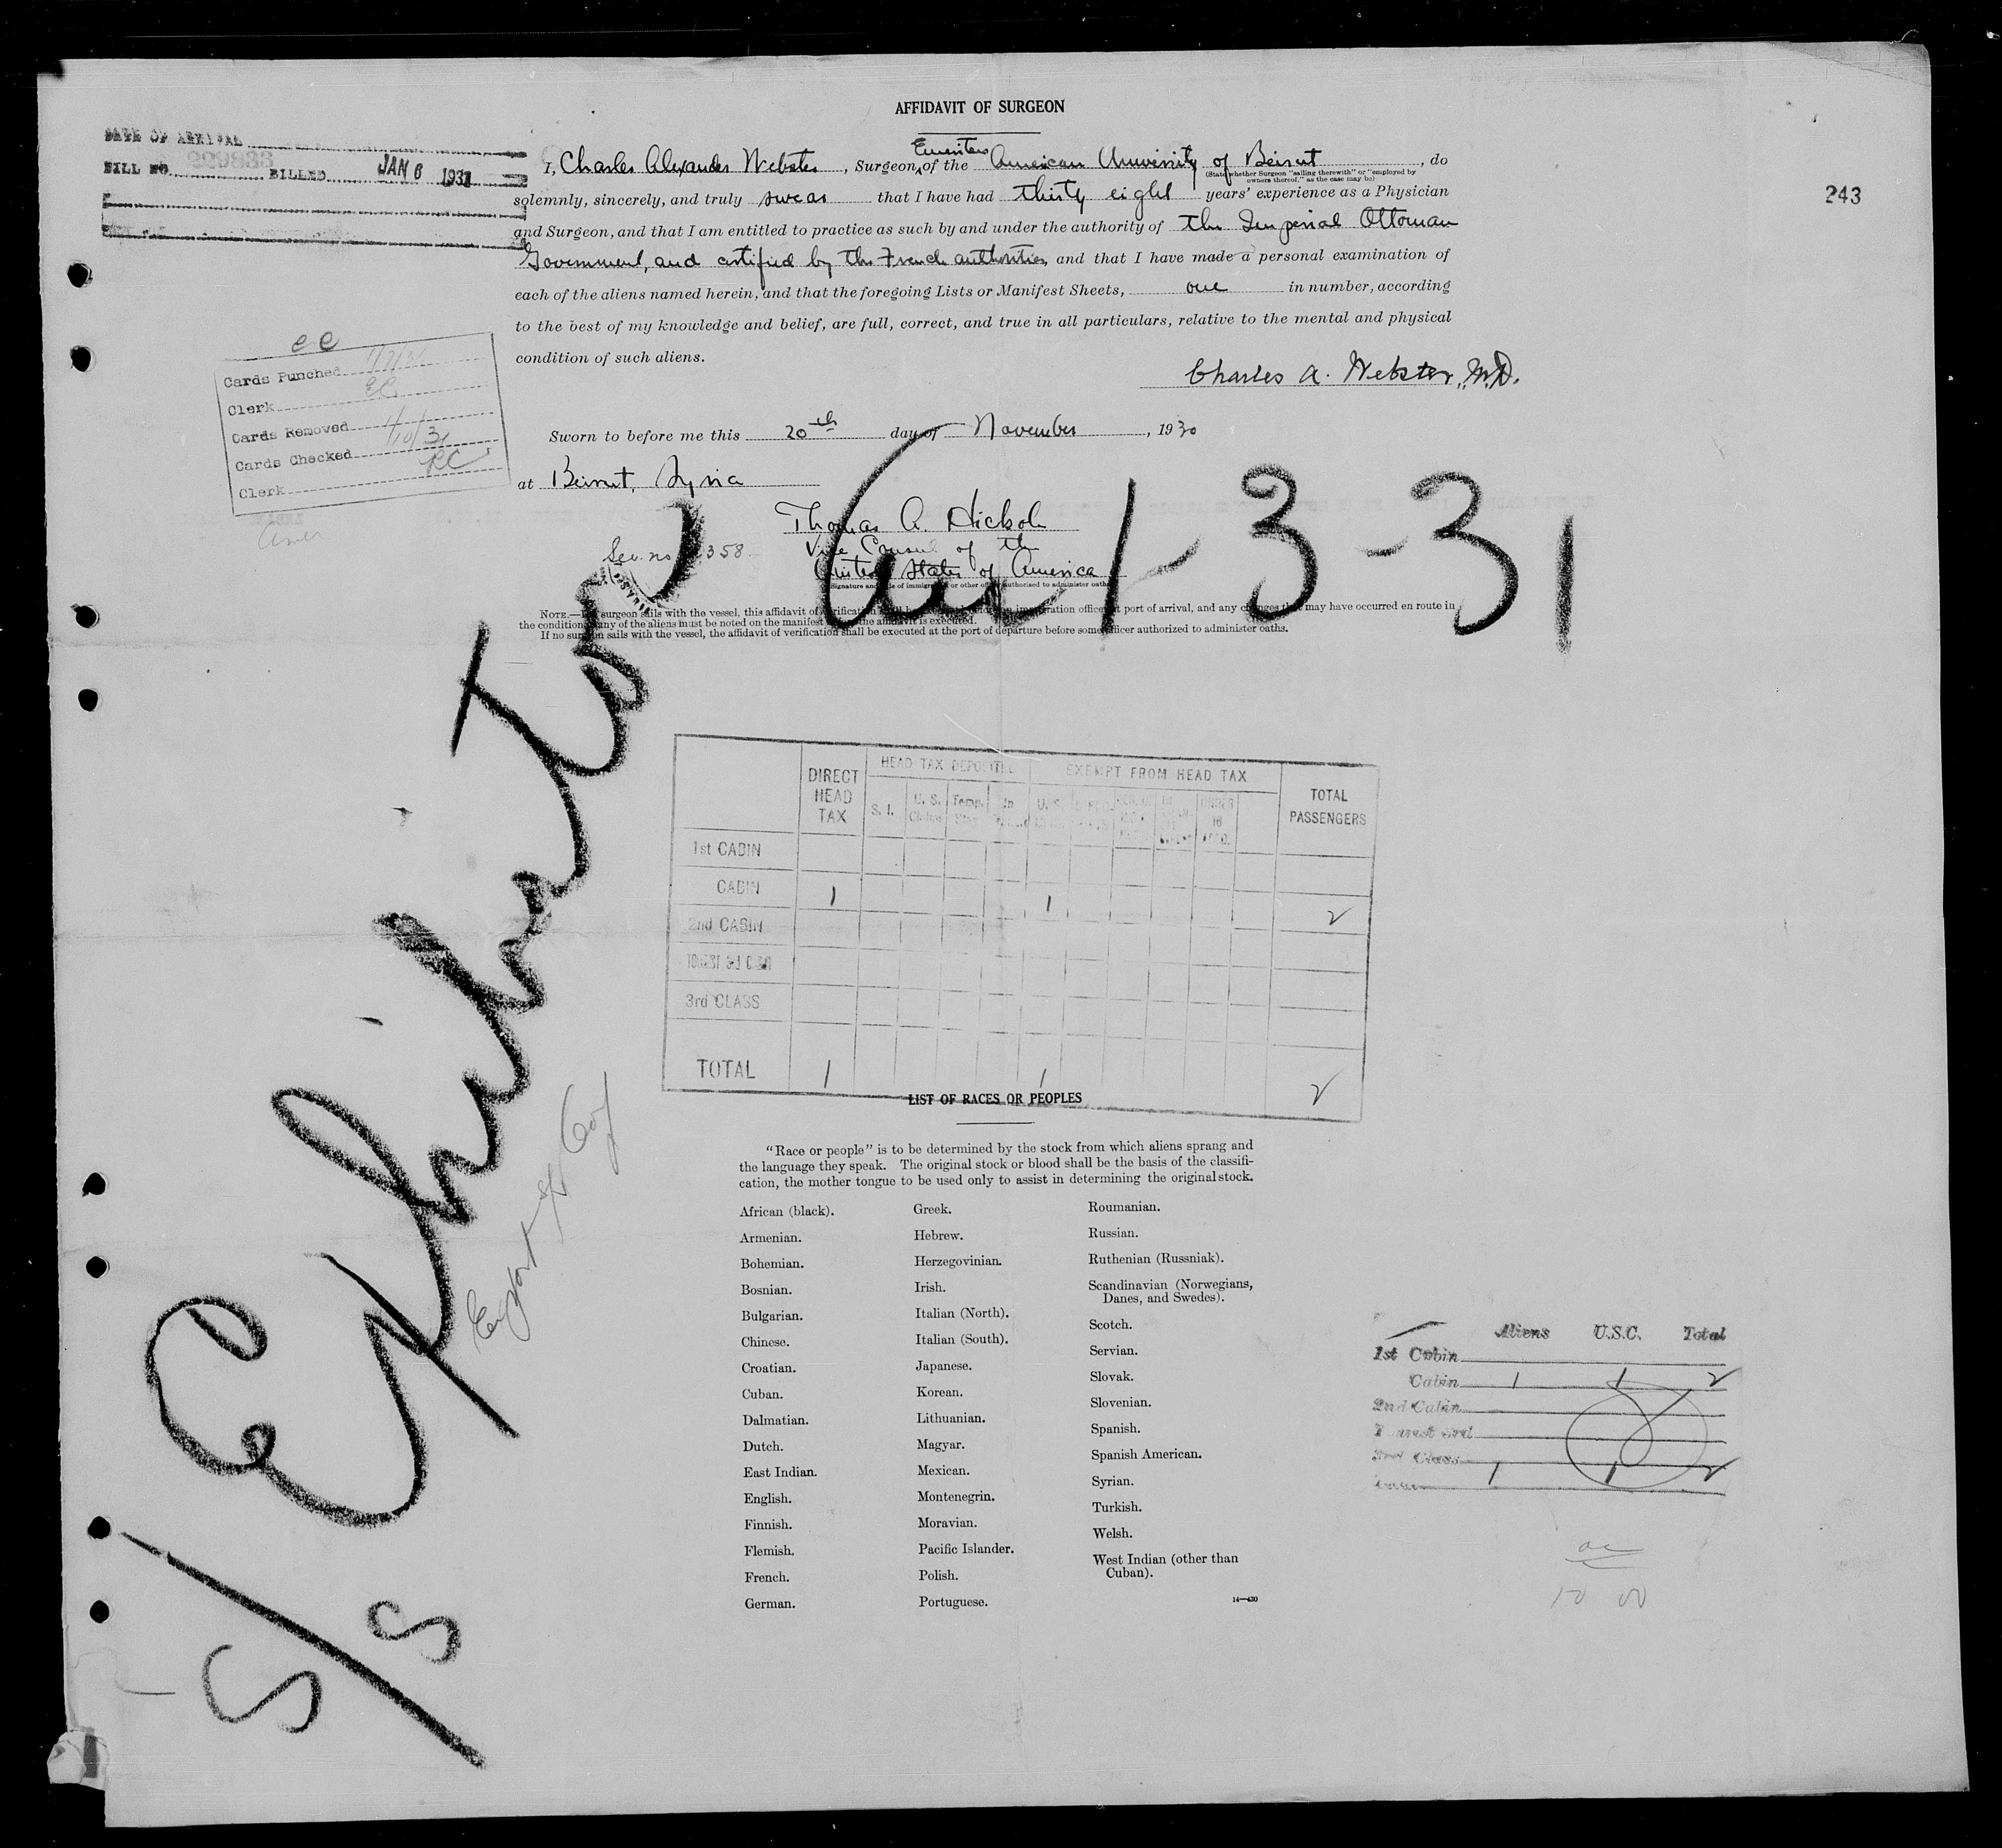 AFFIDAVIT OF SURGEON
DATE OF ARRIVAL
BILL NO. 229833 BILLED JAN 6 1931
243
Emeritus
I, Charles Alexander Webster, Surgeon, of the American University of Beirut, do
(State whether Surgeon "sailing therewith" or "employed by
owners thereof," as the case may be)
solemnly, sincerely, and truly swear that I have had thirty eight years' experience as a Physician
and Surgeon, and that I am entitled to practice as such by and under the authority of the Imperial Ottoman
Government, and certified by the French authorities, and that I have made a personal examination of
each of the aliens named herein, and that the foregoing Lists or Manifest Sheets, one in number, according
to the best of my knowledge and belief, are full, correct, and true in all particulars, relative to the mental and physical
condition of such aliens.
Charles A. Webster, M.D.
ec
Cards Punched
Clerk EC
Cards Removed
Cards Checked 1/10/31
Clerk RC
Sworn to before me this 20th day of November, 1930
at Beirut, Syria
Thomas A. Hickok
Vice Consul of the
United States of America
Ser. no 358
Arr 1-3-31
NOTE.—If surgeon sails with the vessel, this affidavit of verification shall be immigration officer at port of arrival, and any changes that may have occurred en route in
the condition of any of the aliens must be noted on the manifest the affidavit is executed.
If no surgeon sails with the vessel, the affidavit of verification shall be executed at the port of departure before some officer authorized to administer oaths.
S/S Exhibitor
Export SS Corp
DIRECT HEAD TAX
HEAD TAX DEPOSITED
EXEMPT FROM HEAD TAX
TOTAL PASSENGERS
S. I. U. S. Temp. In U. S. UNDER 16
1st CABIN
CABIN 1 1 2
2nd CABIN
TOURIST 3rd CABIN
3rd CLASS
TOTAL 1 1 2
LIST OF RACES OR PEOPLES
"Race or people" is to be determined by the stock from which aliens sprang and
the language they speak. The original stock or blood shall be the basis of the classifi-
cation, the mother tongue to be used only to assist in determining the original stock.
African (black).
Armenian.
Bohemian.
Bosnian.
Bulgarian.
Chinese.
Croatian.
Cuban.
Dalmatian.
Dutch.
East Indian.
English.
Finnish.
Flemish.
French.
German.
Greek.
Hebrew.
Herzegovinian.
Irish.
Italian (North).
Italian (South).
Japanese.
Korean.
Lithuanian.
Magyar.
Mexican.
Montenegrin.
Moravian.
Pacific Islander.
Polish.
Portuguese.
Roumanian.
Russian.
Ruthenian (Russniak).
Scandinavian (Norwegians,
Danes, and Swedes).
Scotch.
Servian.
Slovak.
Slovenian.
Spanish.
Spanish American.
Syrian.
Turkish.
Welsh.
West Indian (other than
Cuban).
14—430
Aliens U.S.C. Total
1st Cabin
Cabin 1 1 2
2nd Cabin
Tourist 3rd
3rd Class 1 1 2
10 00